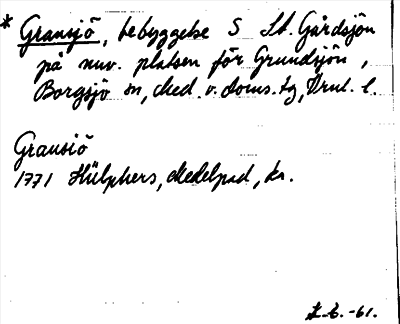 * Gransjö, bebyggelse S St. Gårdsjön
på nuv. platsen för Grundsjön,
Borgsjö sn, Med. v. doms. tg, Vnl. l.
Gransiö
1771 Hülphers, Medelpad, kr.
L.E. -61.